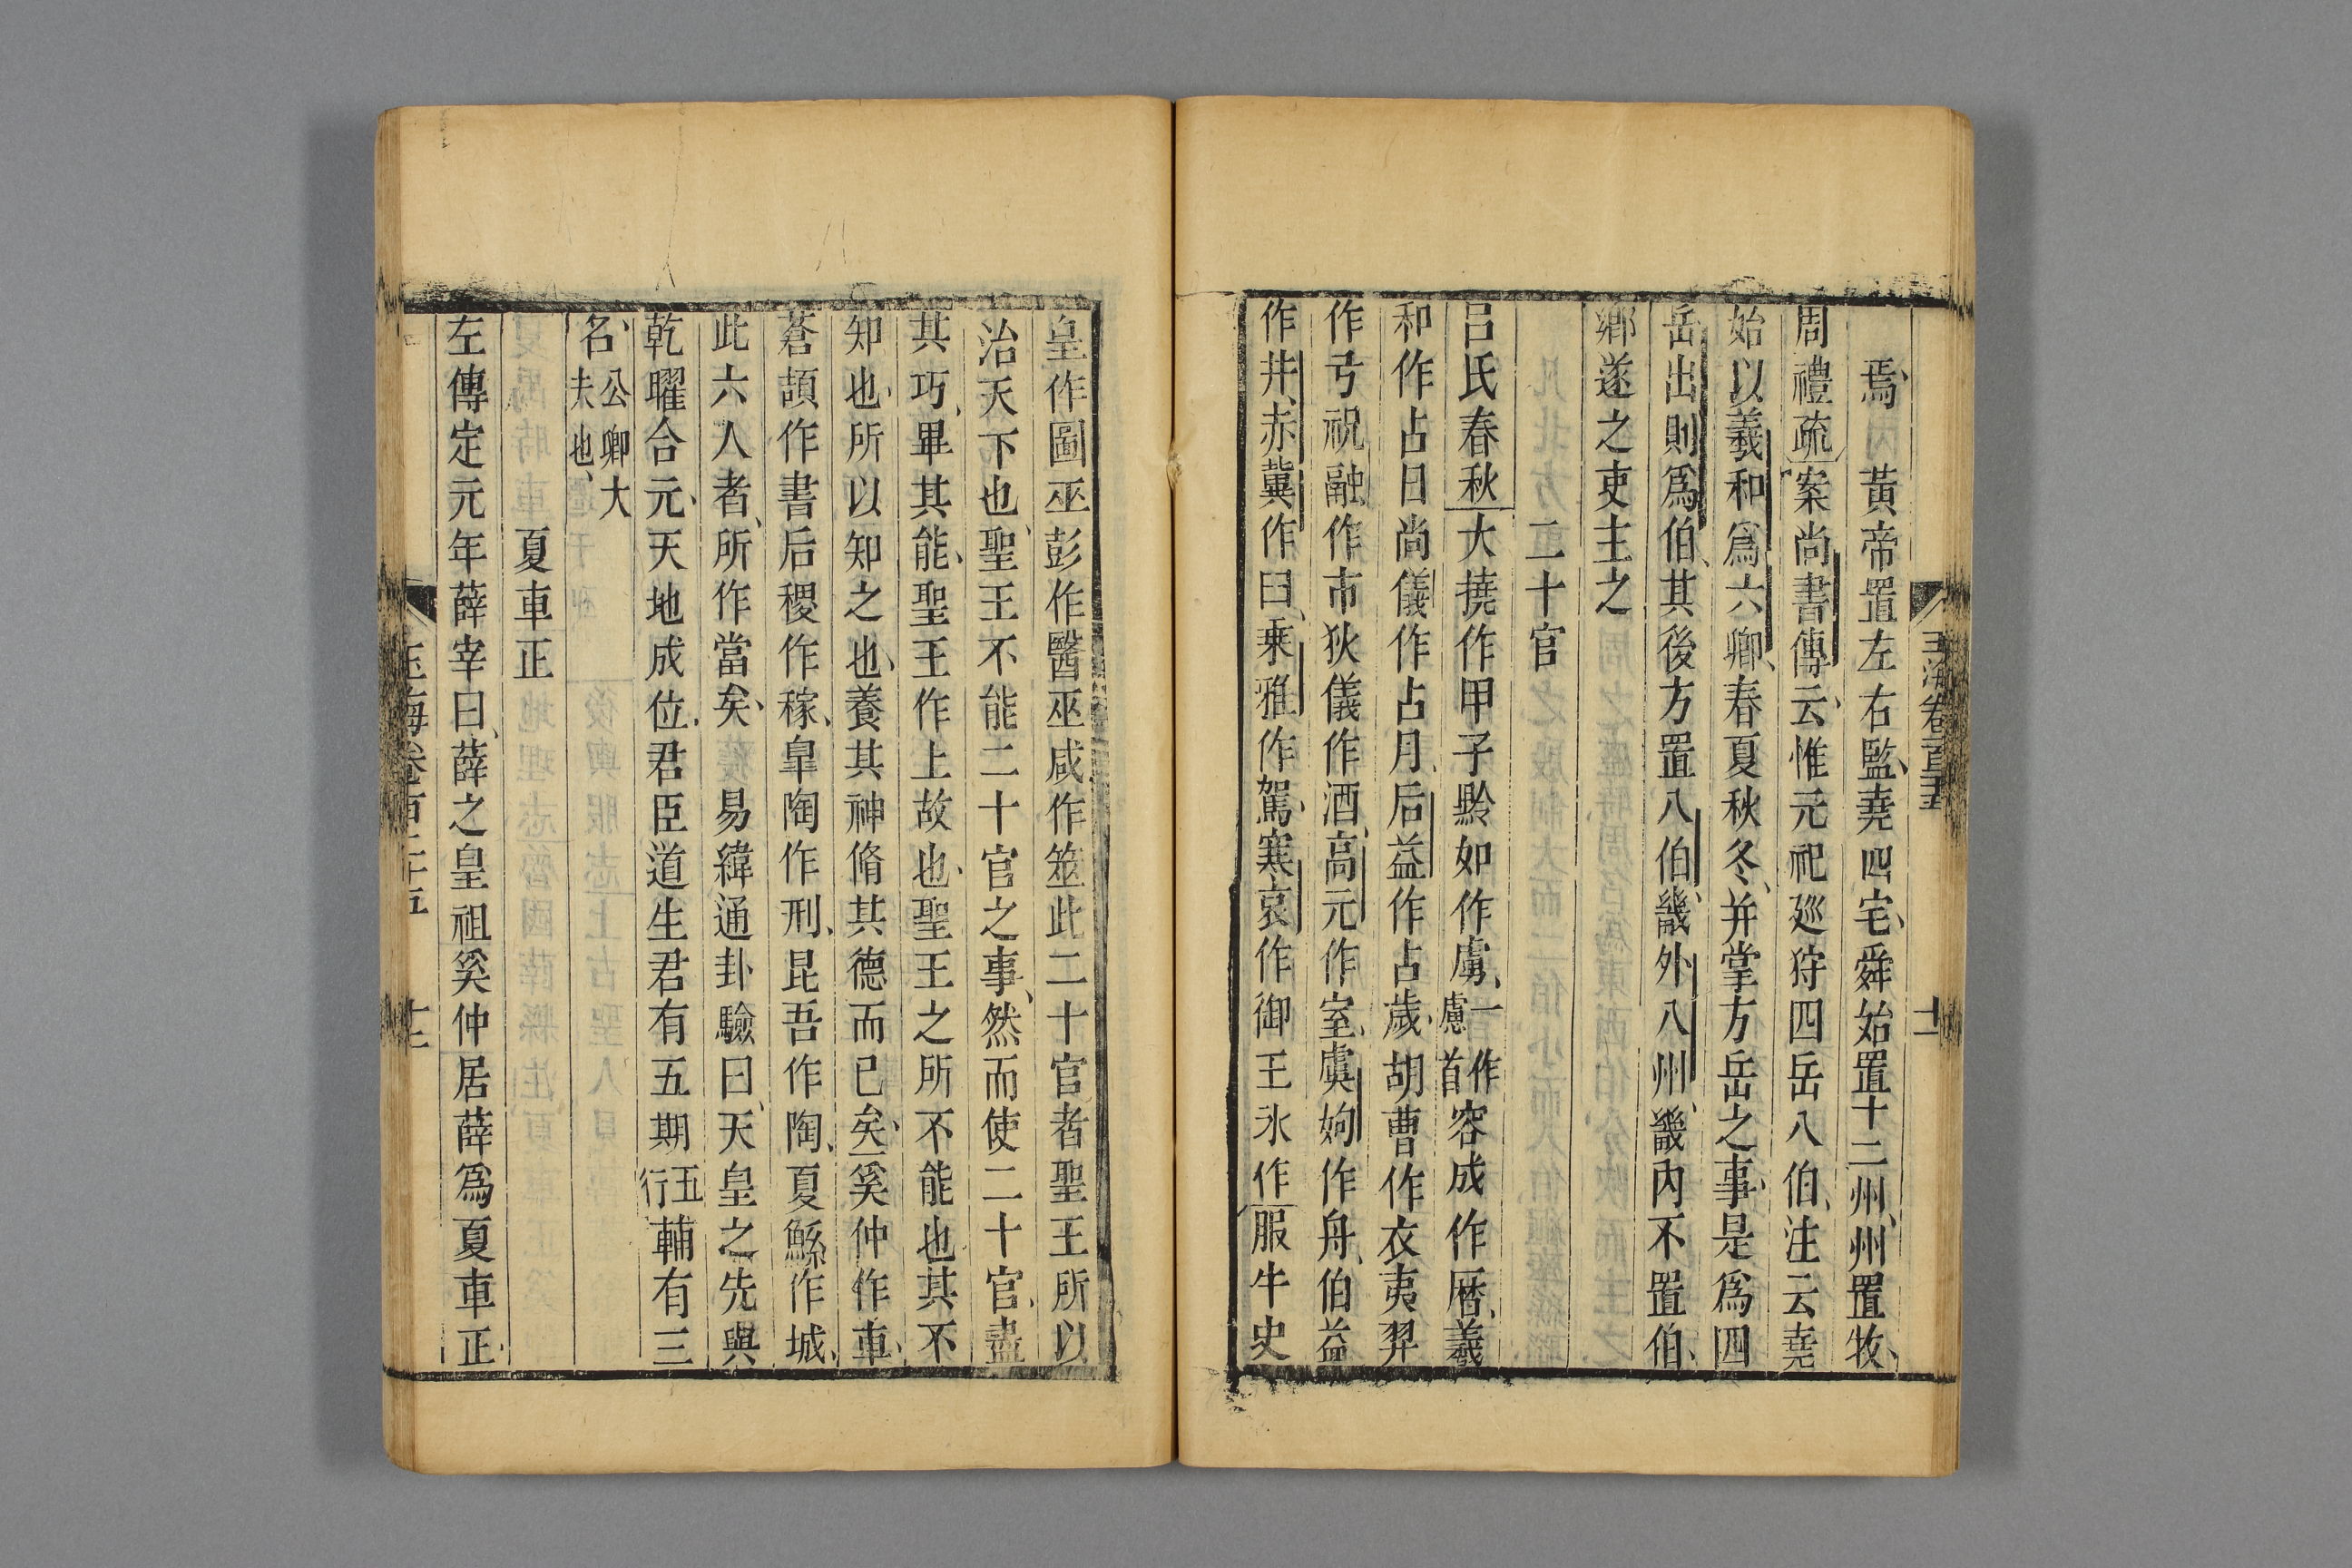 焉 黃帝置左右監堯四宅舜始置十二州州置牧
周禮疏案尚書傳云惟元祀廵狩四岳八伯注云堯
始以羲和爲六卿春夏秋冬并掌方岳之事是爲四
岳出則爲伯其後方置八伯畿外八州畿內不置伯
鄉遂之吏主之
二十官
呂氏春秋大撓作甲子黔如作虜一作慮首容成作厤羲
和作占日尚儀作占月后益作占歲胡曹作衣夷羿
作弓祝融作市狄儀作酒高元作室虞姁作舟伯益
作井赤冀作臼乗雅作駕寒哀作御王氷作服牛史
皇作圖巫彭作醫巫咸作筮此二十官者聖王所以
治天下也聖王不能二十官之事然而使二十官盡
其巧畢其能聖王作上故也聖王之所不能也其不
知也所以知之也養其神脩其德而已矣奚仲作車
蒼頡作書后稷作稼臯陶作刑昆吾作陶夏鯀作城
此六人者所作當矣 易緯通卦驗曰天皇之先與
乾曜合元天地成位君臣道生君有五期五行輔有三
名公卿大夫也
夏車正
左傳定元年薛宰曰薛之皇祖奚仲居薛爲夏車正